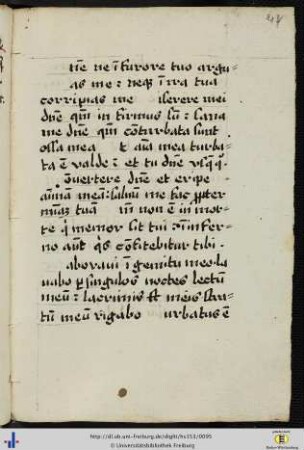 ne ne ī furore tuo argu-
as me: neq; ī ira tua
corripias me iserere mei
dn̄e qm̄ in firmus sū: sana
me dn̄e qm̄ cōturbata sunt
ossa mea t aīa mea turba-
ta ē valde: et tu dn̄e usq; q̊
Cōuertere dn̄e et eripe
aīam meā: saluū me fac ꝓpter
tuā in non ē in mor-
te q̇ memor sit tui: ī infer-
no aūt q̇s confitebitur tibi
aboraui ī gemitu meo la
uabo ꝑ singulos noctes lectū
meū: lacrimis meis stra-
tū meū rigabo urbatus ē
http://dl.ub.uni-freiburg.de/diglit/hs353/0095
© Universitätsbibliothek Freiburg